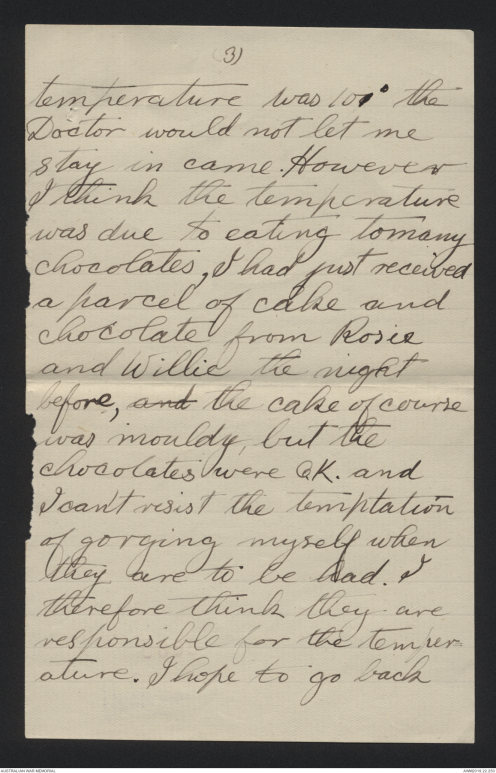 (3)
temperature was 101° the
Doctor would not let me
stay in came. However
I think the temperature
was due to eating tomany
chocolates, I had just received
a parcel of cake and
chocolate from Rosie
and Willie the night
before, and the cake of course
was mouldy, but the
chocolates were O.K. and
I can't resist the temptation
of gorging myself when
they are to be had. I
therefore think they are
responsible for the temper-
ature. I hope to go back
AUSTRALIAN WAR MEMORIAL